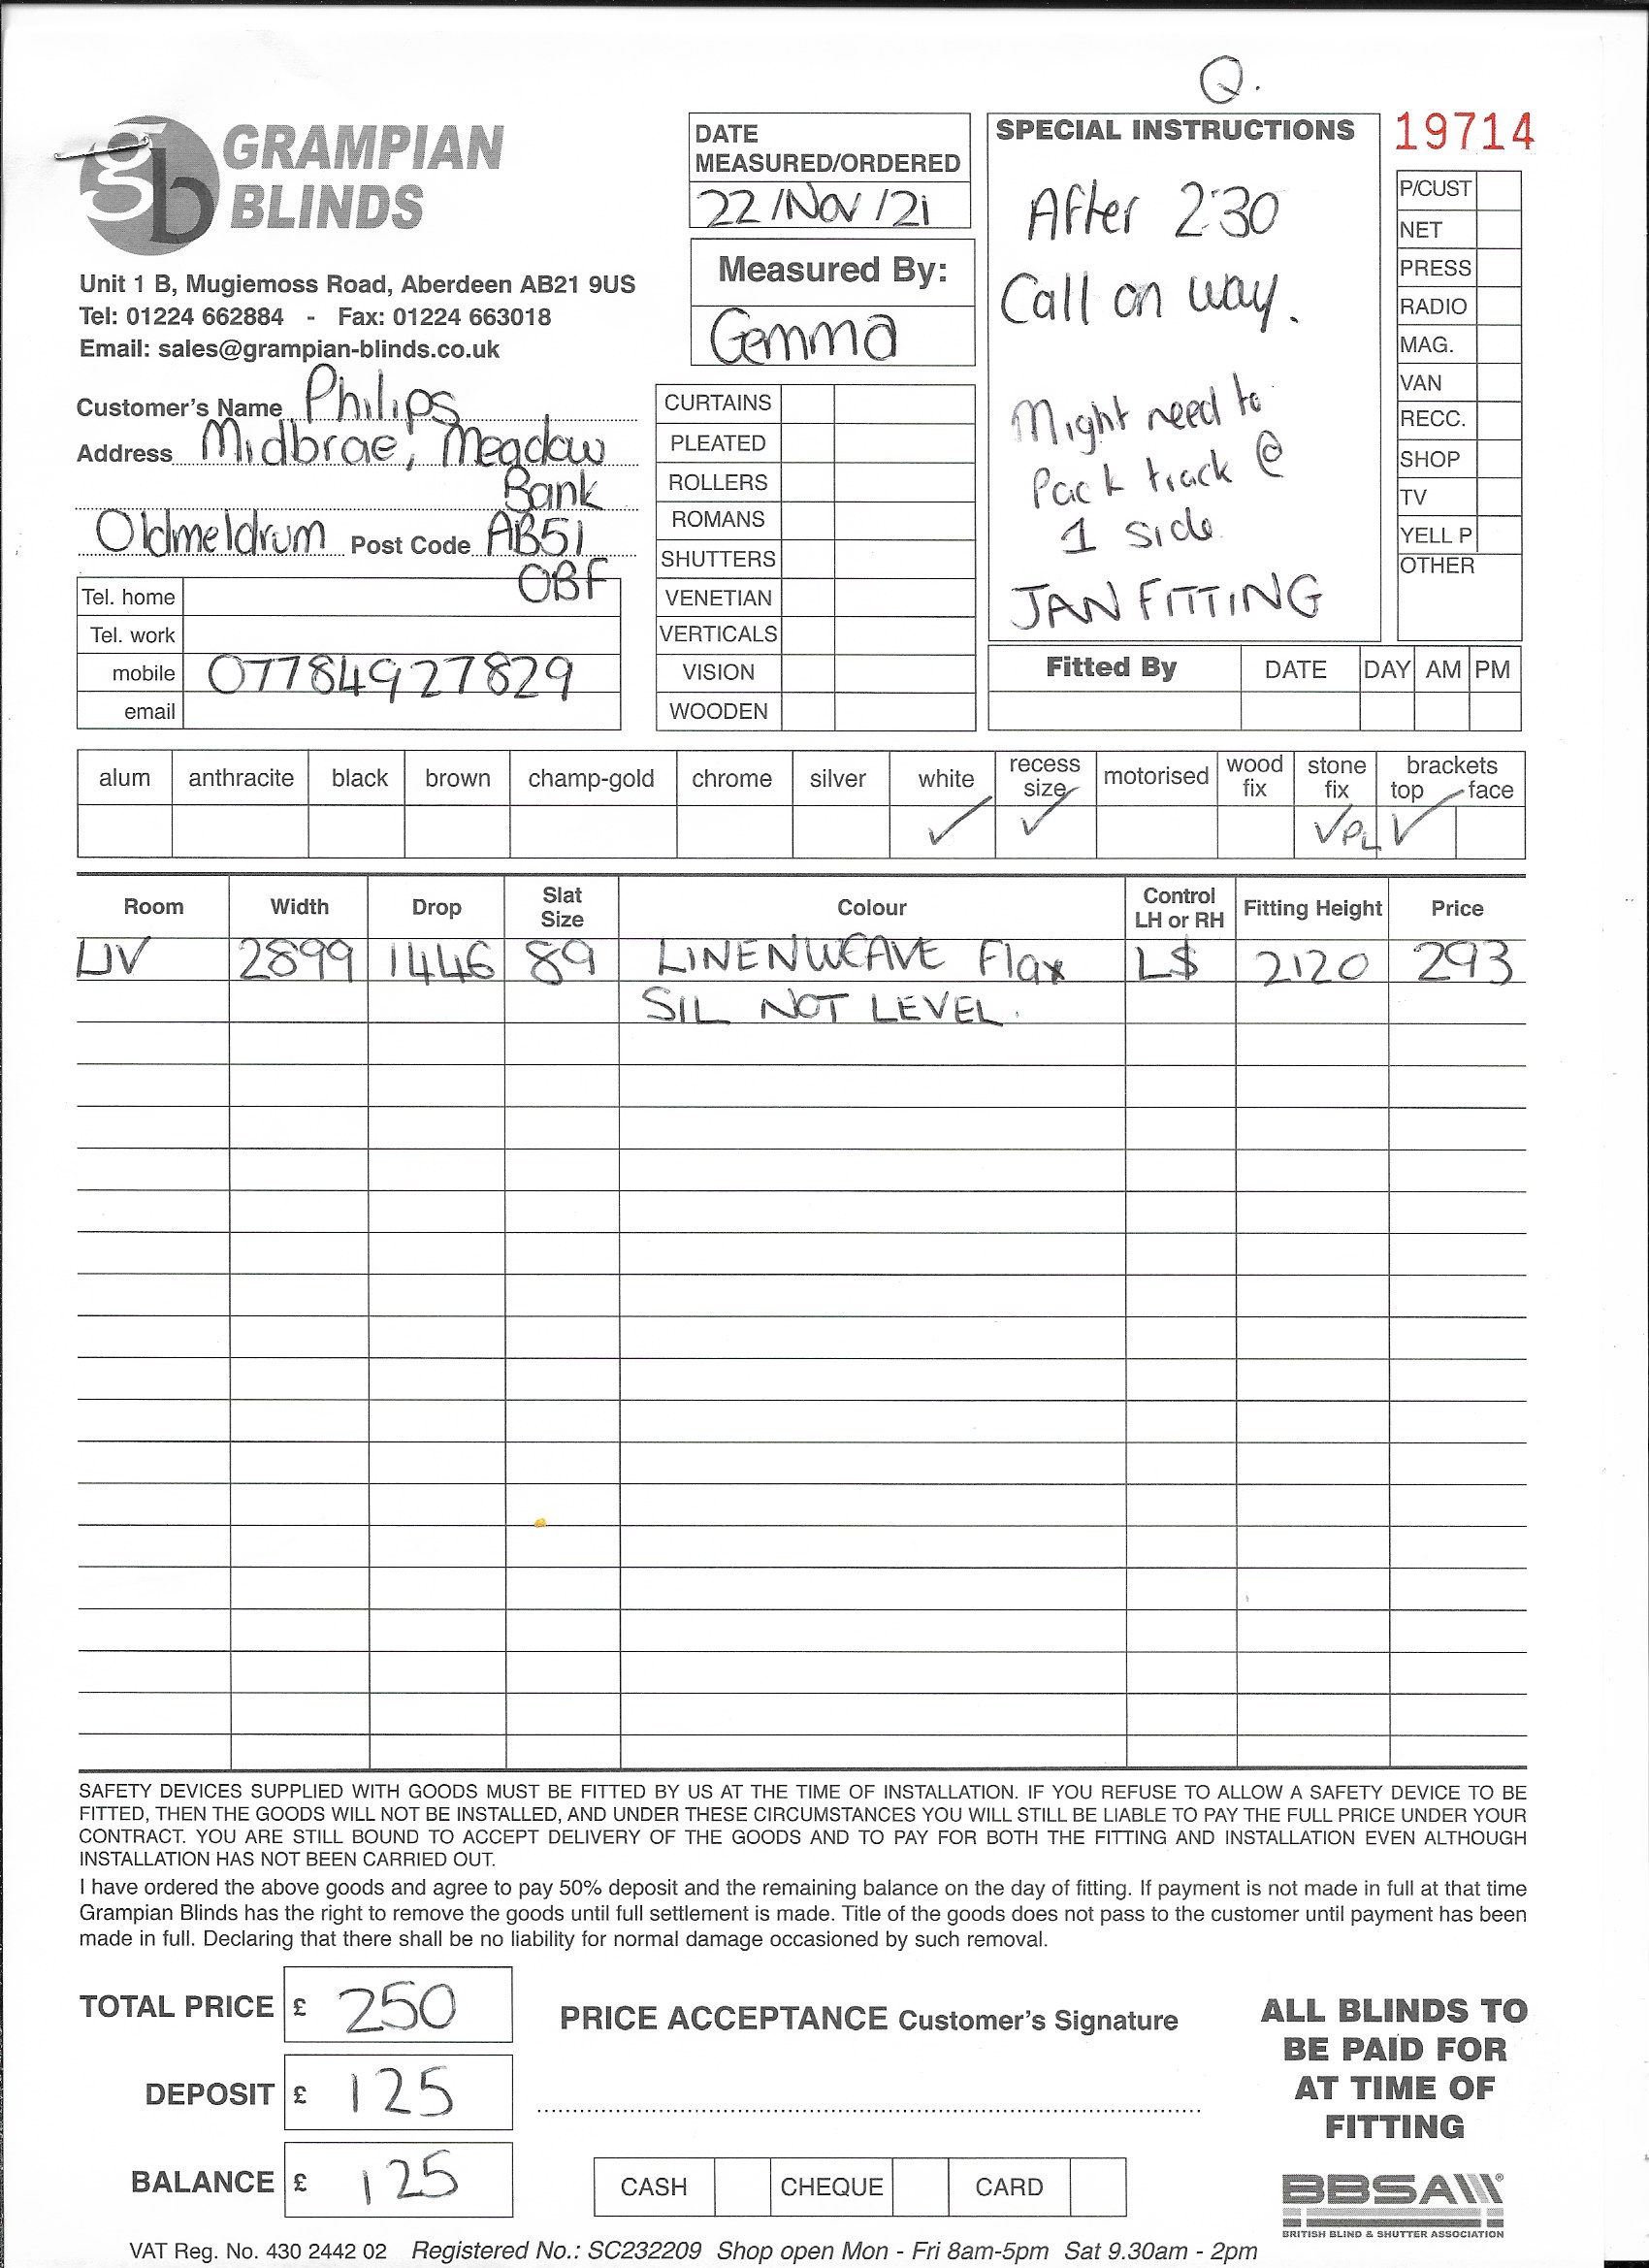 Q.
GRAMPIAN
BLINDS
gb
Unit 1 B, Mugiemoss Road, Aberdeen AB21 9US
Tel: 01224 662884 - Fax: 01224 663018
Email: sales@grampian-blinds.co.uk
Customer's Name Philips
Address Midbrae, Meadow
Bank
Oldmeldrum Post Code AB51
0BF
Tel. home
Tel. work
mobile 07784927829
email
DATE
MEASURED/ORDERED
22/Nov/21
Measured By:
Gemma
CURTAINS
PLEATED
ROLLERS
ROMANS
SHUTTERS
VENETIAN
VERTICALS
VISION
WOODEN
SPECIAL INSTRUCTIONS
After 2:30
Call on way.
Might need to
Pack track @
1 side
JAN FITTING
19714
P/CUST
NET
PRESS
RADIO
MAG.
VAN
RECC.
SHOP
TV
YELL P
OTHER
Fitted By DATE DAY AM PM
alum anthracite black brown champ-gold chrome silver white recess size motorised wood fix stone fix brackets top face
✓ ✓ ✓PL ✓
Room Width Drop Slat Size Colour Control LH or RH Fitting Height Price
LIV 2899 1446 89 LINENWEAVE Flax L$ 2120 293
SIL NOT LEVEL.
SAFETY DEVICES SUPPLIED WITH GOODS MUST BE FITTED BY US AT THE TIME OF INSTALLATION. IF YOU REFUSE TO ALLOW A SAFETY DEVICE TO BE
FITTED, THEN THE GOODS WILL NOT BE INSTALLED, AND UNDER THESE CIRCUMSTANCES YOU WILL STILL BE LIABLE TO PAY THE FULL PRICE UNDER YOUR
CONTRACT. YOU ARE STILL BOUND TO ACCEPT DELIVERY OF THE GOODS AND TO PAY FOR BOTH THE FITTING AND INSTALLATION EVEN ALTHOUGH
INSTALLATION HAS NOT BEEN CARRIED OUT.
I have ordered the above goods and agree to pay 50% deposit and the remaining balance on the day of fitting. If payment is not made in full at that time
Grampian Blinds has the right to remove the goods until full settlement is made. Title of the goods does not pass to the customer until payment has been
made in full. Declaring that there shall be no liability for normal damage occasioned by such removal.
TOTAL PRICE £ 250
DEPOSIT £ 125
BALANCE £ 125
PRICE ACCEPTANCE Customer's Signature
CASH CHEQUE CARD
ALL BLINDS TO
BE PAID FOR
AT TIME OF
FITTING
BBSA
BRITISH BLIND & SHUTTER ASSOCIATION
VAT Reg. No. 430 2442 02 Registered No.: SC232209 Shop open Mon - Fri 8am-5pm Sat 9.30am - 2pm